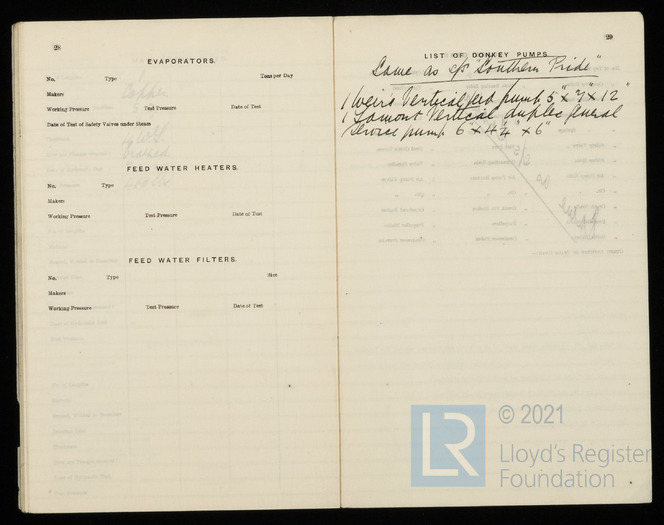 28
EVAPORATORS.
No. Type Tons per Day
Makers
Working Pressure Test Pressure Date of Test
Date of Test of Safety Valves under Steam
FEED WATER HEATERS.
No. Type
Makers
Working Pressure Test Pressure Date of Test
FEED WATER FILTERS.
No. Type Size
Makers
Working Pressure Test Pressure Date of Test
29
LIST OF DONKEY PUMPS.
Same as s/s "Southern Pride"
1 Weirs Vertical feed pump 5" x 7" x 12"
1 Lamont Vertical duplex general
service pump 6" x 4¼" x 6"
LR
© 2021
Lloyd's Register
Foundation